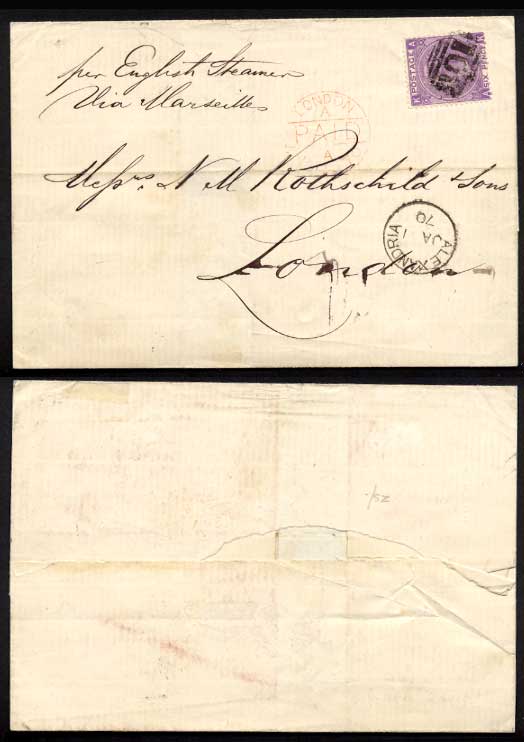 per English Steamer
Via Marseilles
POSTAGE
SIX PENCE
K
A
A
K
LONDON
A
PAID
Messrs. N M Rothschild & Sons
London
ALEXANDRIA
JA 1
70